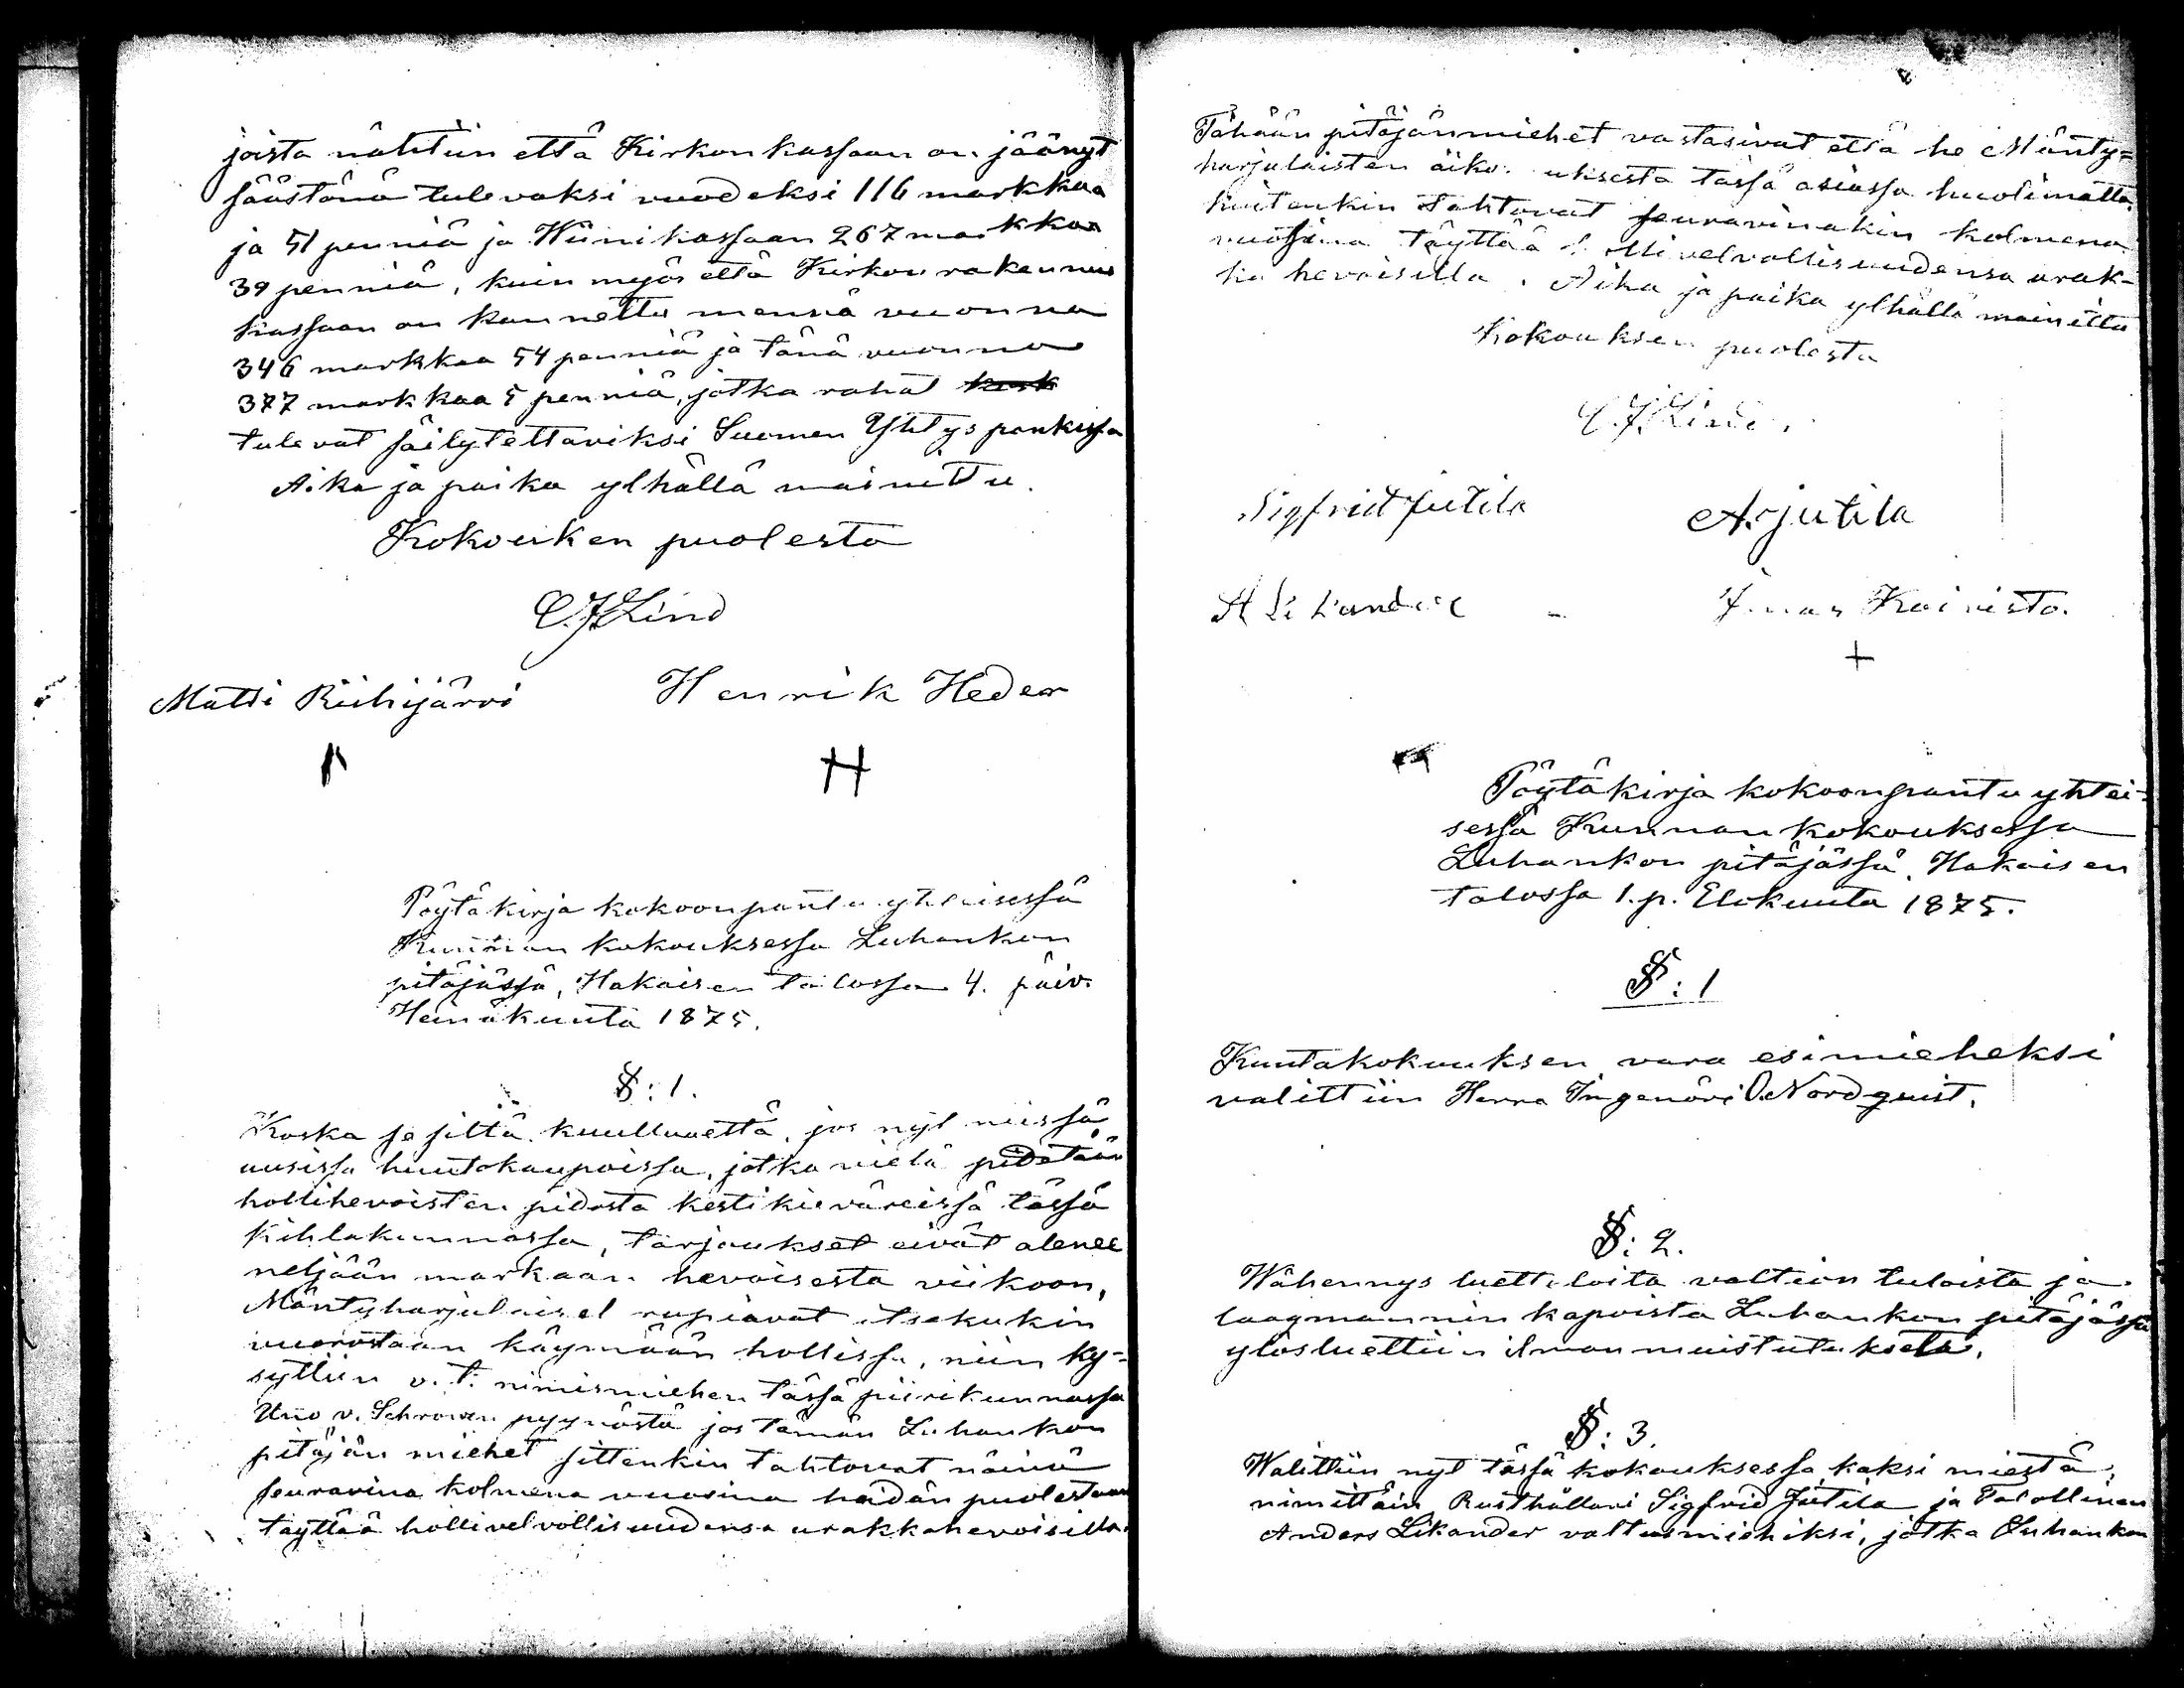 joista nähtiin että Kirkonkassaan on jäänyt
säästönä tulevaksi vuodeksi 116 markkaa
ja 51 penniä ja Wiinikassaan 267 markkaa
39 penniä, kuin myös että Kirkon rakennus
kassaan on kannettu mennä vuonna
346 markkaa 54 penniä ja tänä vuonna
377 markkaa 5 penniä, jotka rahat
tulevat säilytettäviksi Suomen Yhtyspankissa
Aika ja paika ylhällä mainittu.
Kokouken puolesta
C.J. Lind
Matti Riihijärvi Henrik Heder
H
Pöytäkirja kokoonpantu yhteisessä
Kunnan kokouksessa Luhankon
pitäjässä, Hakaisen talossa 4. päiv.
Heinäkuuta 1875.
§: 1.
Koska se siltä kuulluvettä, jos nyt niissä
uusissa huutokaupoissa, jotka vielä pidetään
hollihevoisten pidosta kestikievareissä tässä
Kihlakunnassa, tarjoukset eivät alenee
neljään markaan hevoisesta viikoon,
Mäntyharjulaiset rupiavat itsekukin
vuorostaan käymään hollissa, niin ky=
syttiin v.t. nimismiehen tässä piirikunnassa
Uno v. Schrowen pyynöstä jos tämän Luhankon
pitäjän miehet sittenkin tahtovat näinä
seuravina kolmena vuosina heidän puolestaan
täyttää hollivelvollisuudensa urakkahevoisilla.
Tähään pitäjänmiehet vastasivat että he Mänty=
harjulaisten tässä asiassa huolimatta
kuitenkin tahtovat seuravinakin kolmena
vuosina täyttää hollivelvollisuudensa urak=
ka hevoisilla. Aika ja paika ylhällä mainittu
Kokouksen puolesta
C.J. Lind.
Sigfrid Jutila A. Jutila
A Likander Jonas Koivisto.
+
Pöytäkirja kokoonpantu yhtei=
sessä Kunnan kokouksessa
Luhankon pitäjässä, Hakaisen
talossa 1. p. Elokuuta 1875.
§: 1
Kuntakokouksen vara esimieheksi
valittiin Herra Ingenöri O. Nordquist.
§: 2.
Wähennys luettiloita valtion tuloista ja
laagmannin kapoista Luhankon pitäjässä
ylösluettiin ilman muistutukseta.
§: 3.
Walittiin nyt tässä kokouksessa kaksi miestä,
nimittäin Rusthållari Sigfrid Jutila ja Talollinen
Anders Likander valtuusmiehiksi, jotka Luhankon